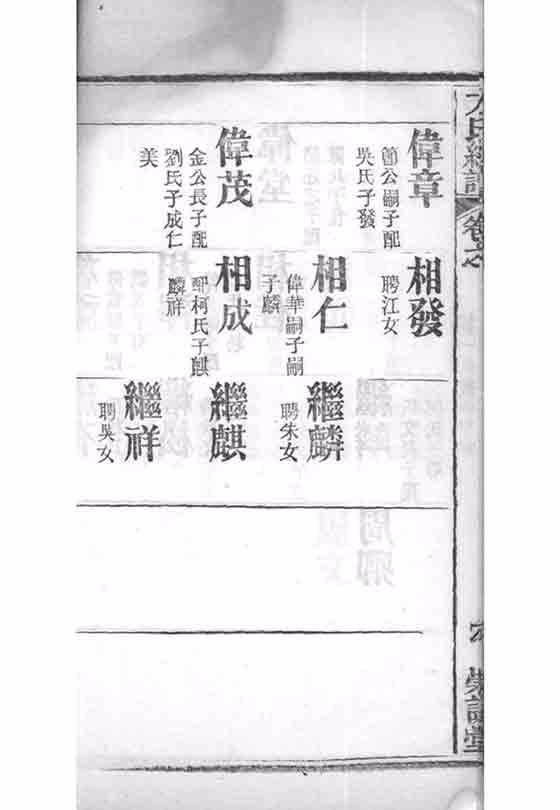 偉章
節公嗣子配
吳氏子發
相發
聘江女
相仁
偉華嗣子嗣
子麟
繼麟
聘朱女
偉茂
金公長子配
劉氏子成仁
美
相成
配柯氏子麒
麟祥
繼麒
繼祥
聘吳女